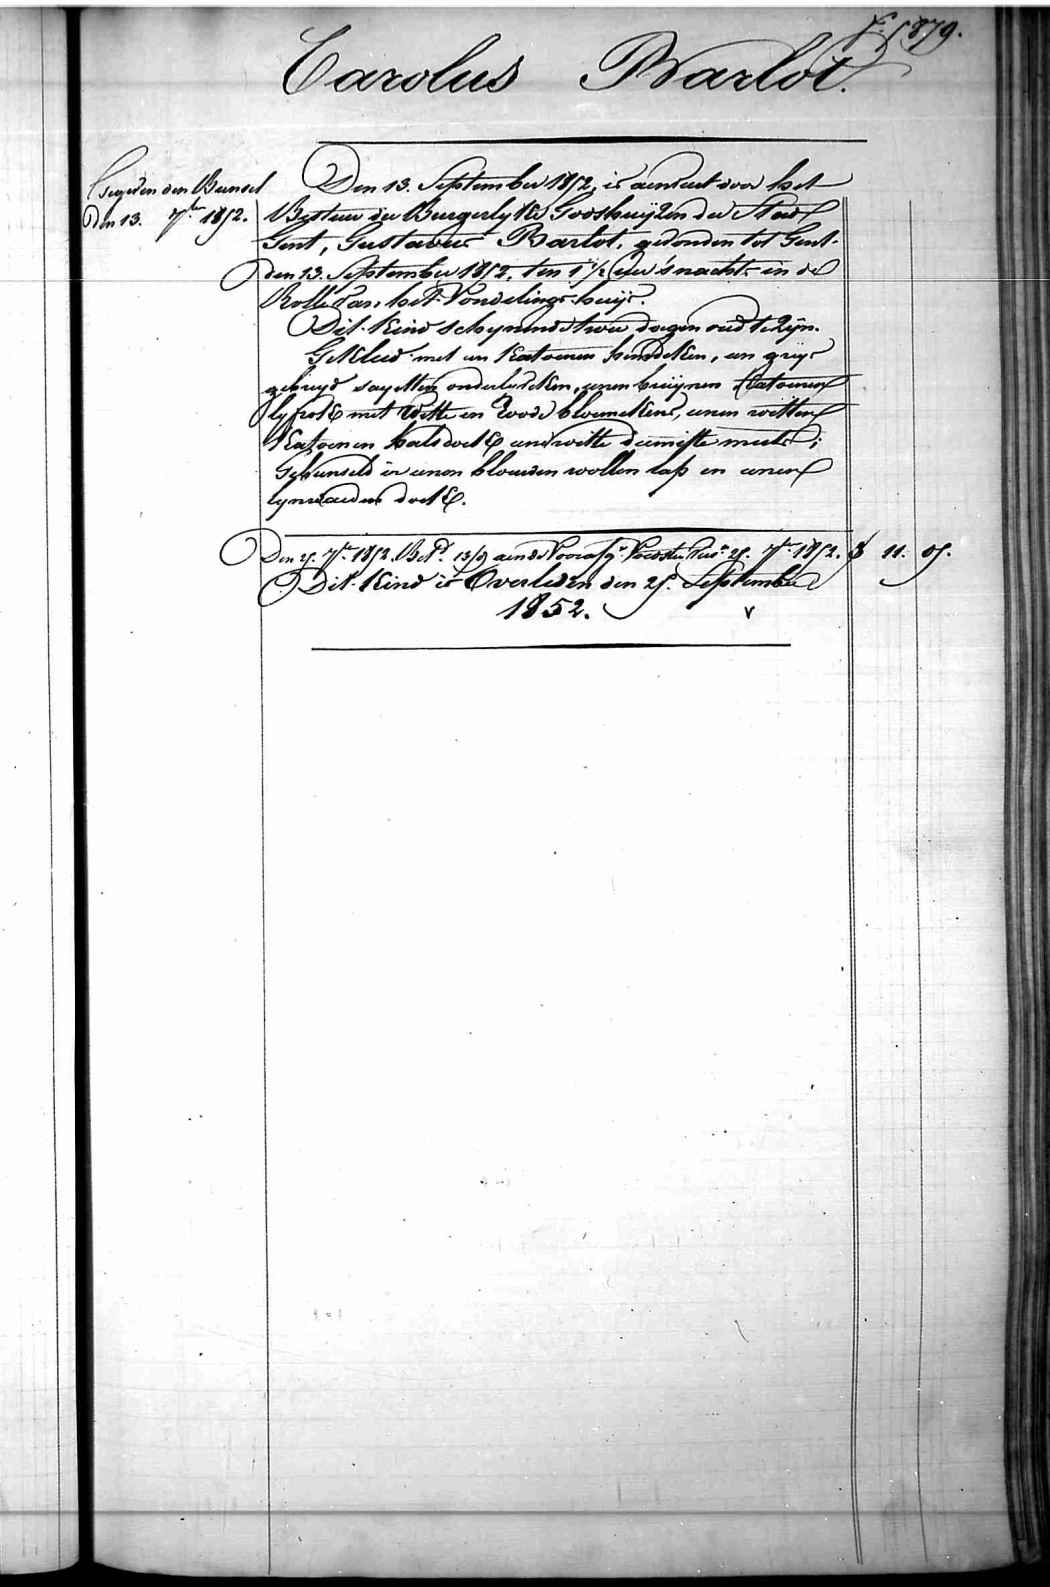 5879.
Carolus Barlot.
Gegeven den Bunsel
Den 13. 7ber 1852.
Den 13. September 1852, is aenveert door het
Bestuur der Burgerlyke Godshuijzen der Stad
Gent, Gustavus Barlot, gevonden tot Gent
den 13. September 1852, ten 1 1/2 ure 's nachts in de
Rolle van het Vondelings-huijs.
Dit Kind schynende twee dagen oud te Zyn.
Gekleed met een Katoenen hemdeken, een grys
gebreyd sayetten onderlyfdeken, eenen bruijnen Katoenen
lyfrok met Witte en Roode bloemekens, eenen witten
Katoenen halsdoek eene witte diemitte muts;
Gebunseld in eenen blauwen wollen lap en eenen
lynwaeden doek.
Den 25. 7ber 1852. Bet. aende Voorsz. Voedster 25. 7ber 1852. 11. 05.
Dit Kind is Overleden den 25. September
1852. v